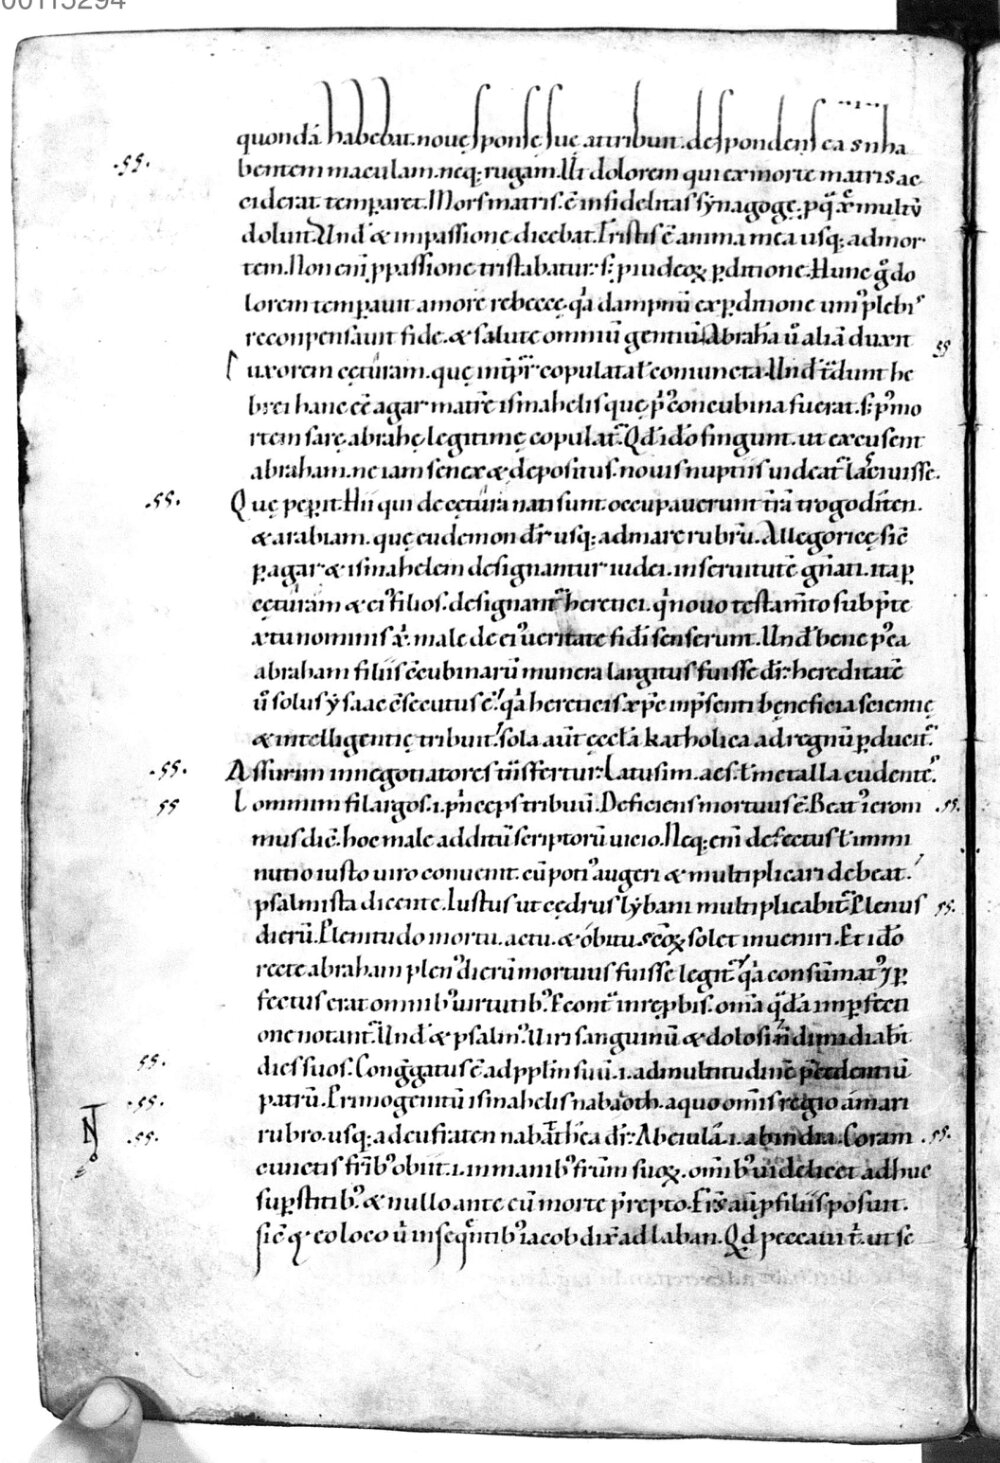 00115294
quondā habebat. nouę sponsę suę attribuit. despondens ea s n ha
bentem maculam. neq; rugam. Ut dolorem qui ex morte matris ac
ciderat temp̄aret. Mors matris. ē infidelitas sẏnagogę. p q̄ xp̄c multū
doluit. Und̄ & in passione dicebat. Tristis ē anima mea usq; ad mor
tem. Non eni ̄ppassione tristabatur. s; p iudeoꝝ p̄ditione. Hunc g̊ do
lorem temp̄auit amore rebeccę. q̇a dampnū ex p̄ditione uniꝰ plebis
reconpensauit fide. & salute omniū gentiū. Abrahā ū aliā duxit
uxorem cęturam. quę int̄pr̄ copulata ł coniuncta. Und̄ t̄dunt he
brei hanc ēē agar matrē ismahelis quę p̊ concubina fuerat. s; p mo
rtem sarę abrahę legitimę copulat̄. Qd̄ id̊o fingunt. ut excusent
abraham. ne iam senex & depositus. nouis nuptiis uideat̄ lasciuisse.
Quę pep̄it. Hii qui de cętura nati sunt occupauerunt t̄rā trogoditen.
& arabiam. quę eudemon dr̄ usq; ad mare rubrū. Allegoricę sic̄
p̄ agar & ismahelem designantur iudei. in seruitutē gn̄ati. ita p̄
cęturam & eiꝰ filios. designant̄ heretici. q̇ nouo testam̄to sub p̄te
xtu nominis xp̄i. male de eiꝰ ueritate fidei senserunt. Und̄ bene p̊ ea
abraham filiis c̄cubinarū munera largitus fuisse dr̄. hereditatē
ū solus ẏsaac c̄secutus ē. q̇a hereticis xp̄c in p̄senti bęneficia scientię
& intelligentię tribuit. sola aūt ęcc̄la katholica ad regnū p̄ducit̄.
Assurim in negotiatores t̄nsfertur. Latusim. aes. ł metalla cudentes.
Lommim filargos. i. p̄nceps tribuū. Deficiens mortuus ē. Beatꝰ ieroni
mus dic̄. hoc male additū scriptorū uicio. Neq; eni defectus ł immi
nutio iusto uiro conuenit. cū potiꝰ augeri & multiplicari debeat.
psalmista dicente. Iustus ut cędrus lẏbani multiplicabit̄. Plenus
dierū. Plenitudo mortu. actu. & obitu sc̄oꝝ solet inueniri. Et id̊o
recte abraham plenꝰ dierū mortuus fuisse legit̄. q̇a consūmatꝰ & p̄
fectus erat omnibꝰ uirtutibꝰ. E cont̄ in reprobis. om̄a q̄dā inp̄fecti
one notant̄. Und̄ & psalmꝰ. Uiri sanguinū & dolosi n̄ dimidiab̄t
dies suos. Congg̊atus ē ad pplm̄ suū. i. ad multitudinē p̄cedentiū
patrū. Primogenitū ismahelis nabaoth. a quo om̄is regio a mari
rubro. usq; ad eufraten nabathea dr̄. Abeiulā. i. ab india. Coram
cunctis fr̄ibꝰ obiit. i. in manibꝰ fr̄um suoꝝ. om̄ibꝰ uidelicet adhuc
sup̄stitibꝰ. & nullo ante cū morte p̄repto. Fr̄s aū p filiis posuit.
sic̄ & eo loco ū inseqūntibꝰ iacob dix̄ ad laban. Qd̄ peccaui t̄. ut se